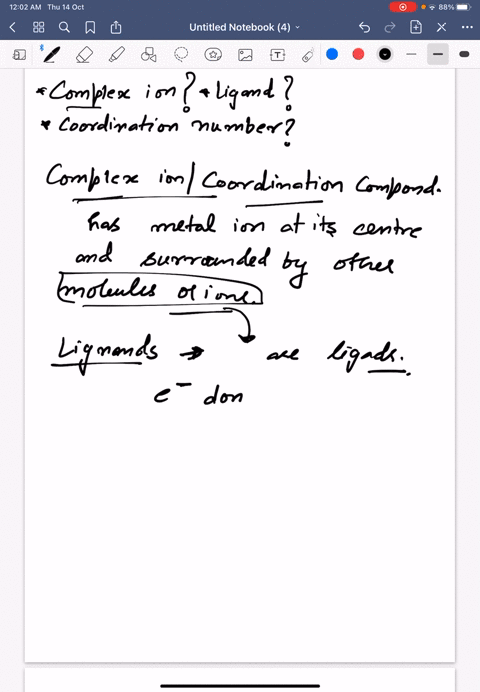 12:02 AM Thu 14 Oct 88%
Untitled Notebook (4)
* Complex ion? * Ligand?
* Coordination number?
Complex ion/Coordination Compond.
has metal ion at its centre
and surrounded by other
molecules or ions.
Ligmands → are ligads.
e⁻ don